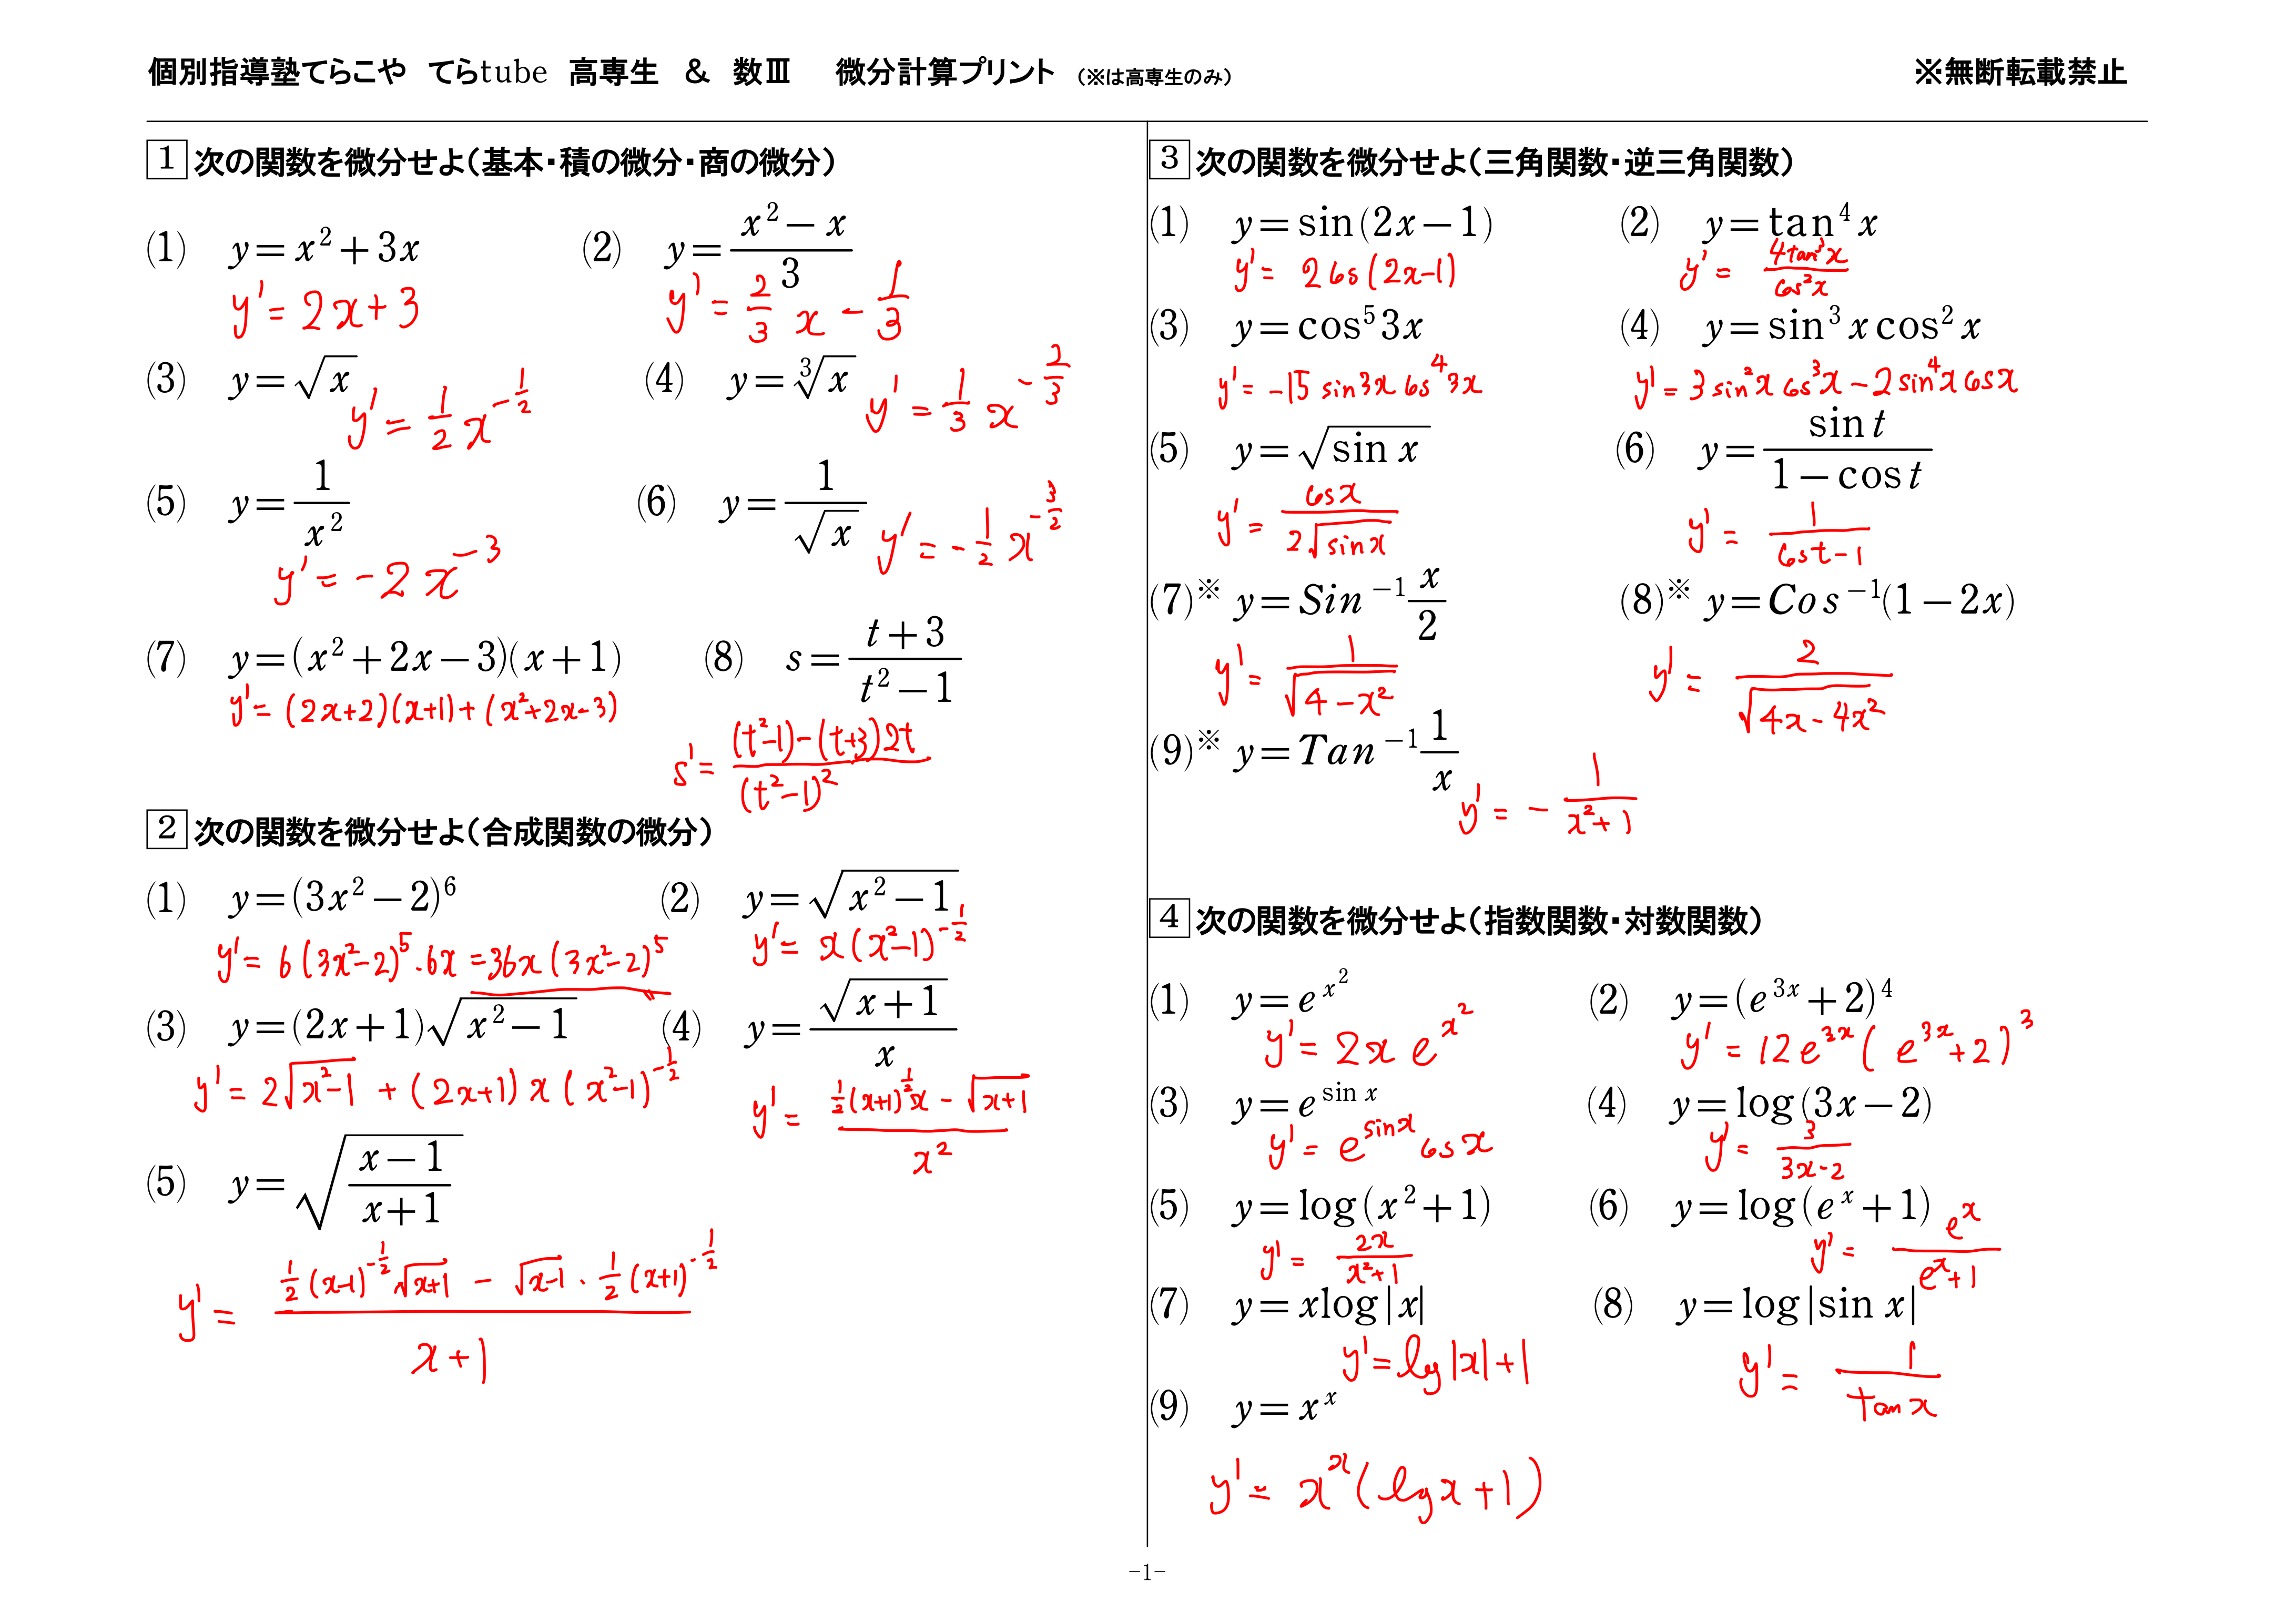 個別指導塾てらこや てらtube 高専生 & 数Ⅲ 微分計算プリント (※は高専生のみ) ※無断転載禁止
1 次の関数を微分せよ(基本・積の微分・商の微分)
(1) y=x²+3x
y'=2x+3
(2) y=(x²−x)/3
y'=2/3 x − 1/3
(3) y=√x
y'=1/2 x^(−1/2)
(4) y=³√x
y'=1/3 x^(−2/3)
(5) y=1/x²
y'=−2x^(−3)
(6) y=1/√x
y'=−1/2 x^(−3/2)
(7) y=(x²+2x−3)(x+1)
y'=(2x+2)(x+1)+(x²+2x−3)
(8) s=(t+3)/(t²−1)
s'=((t²−1)−(t+3)2t)/(t²−1)²
2 次の関数を微分せよ(合成関数の微分)
(1) y=(3x²−2)⁶
y'=6(3x²−2)⁵·6x=36x(3x²−2)⁵
(2) y=√(x²−1)
y'=x(x²−1)^(−1/2)
(3) y=(2x+1)√(x²−1)
y'=2√(x²−1)+(2x+1)x(x²−1)^(−1/2)
(4) y=√(x+1)/x
y'=(1/2(x+1)^(1/2)x−√(x+1))/x²
(5) y=√((x−1)/(x+1))
y'=(1/2(x−1)^(−1/2)√(x+1)−√(x−1)·1/2(x+1)^(−1/2))/(x+1)
3 次の関数を微分せよ(三角関数・逆三角関数)
(1) y=sin(2x−1)
y'=2cos(2x−1)
(2) y=tan⁴x
y'=4tan³x/cos²x
(3) y=cos⁵3x
y'=−15sin3x cos⁴3x
(4) y=sin³x cos²x
y'=3sin²x cos³x−2sin⁴x cosx
(5) y=√(sin x)
y'=cosx/(2√(sinx))
(6) y=sin t/(1−cos t)
y'=1/(cost−1)
(7)※ y=Sin⁻¹ x/2
y'=1/√(4−x²)
(8)※ y=Cos⁻¹(1−2x)
y'=2/√(4x−4x²)
(9)※ y=Tan⁻¹ 1/x
y'=−1/(x²+1)
4 次の関数を微分せよ(指数関数・対数関数)
(1) y=e^(x²)
y'=2x e^(x²)
(2) y=(e^(3x)+2)⁴
y'=12e^(3x)(e^(3x)+2)³
(3) y=e^(sin x)
y'=e^(sinx)cosx
(4) y=log(3x−2)
y'=3/(3x−2)
(5) y=log(x²+1)
y'=2x/(x²+1)
(6) y=log(e^x+1)
y'=e^x/(e^x+1)
(7) y=xlog|x|
y'=log|x|+1
(8) y=log|sin x|
y'=1/tanx
(9) y=x^x
y'=x^x(logx+1)
-1-